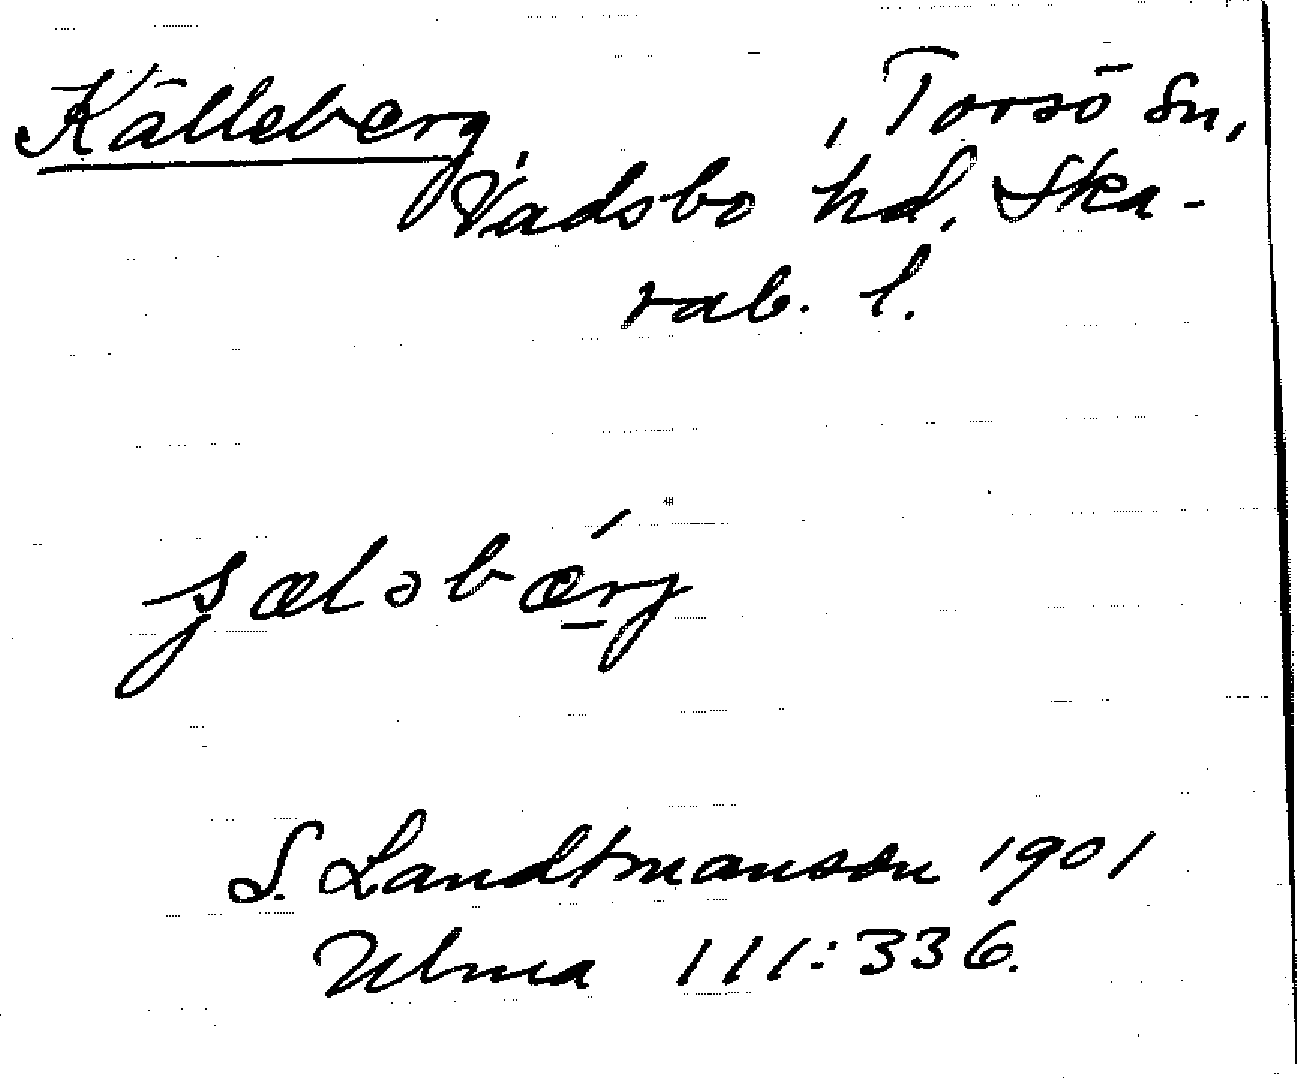 Källeberg, Torsö sn,
Vadsbo hd. Ska-
rab. l.
S. Landtmanson 1901
Ulma 111:336.